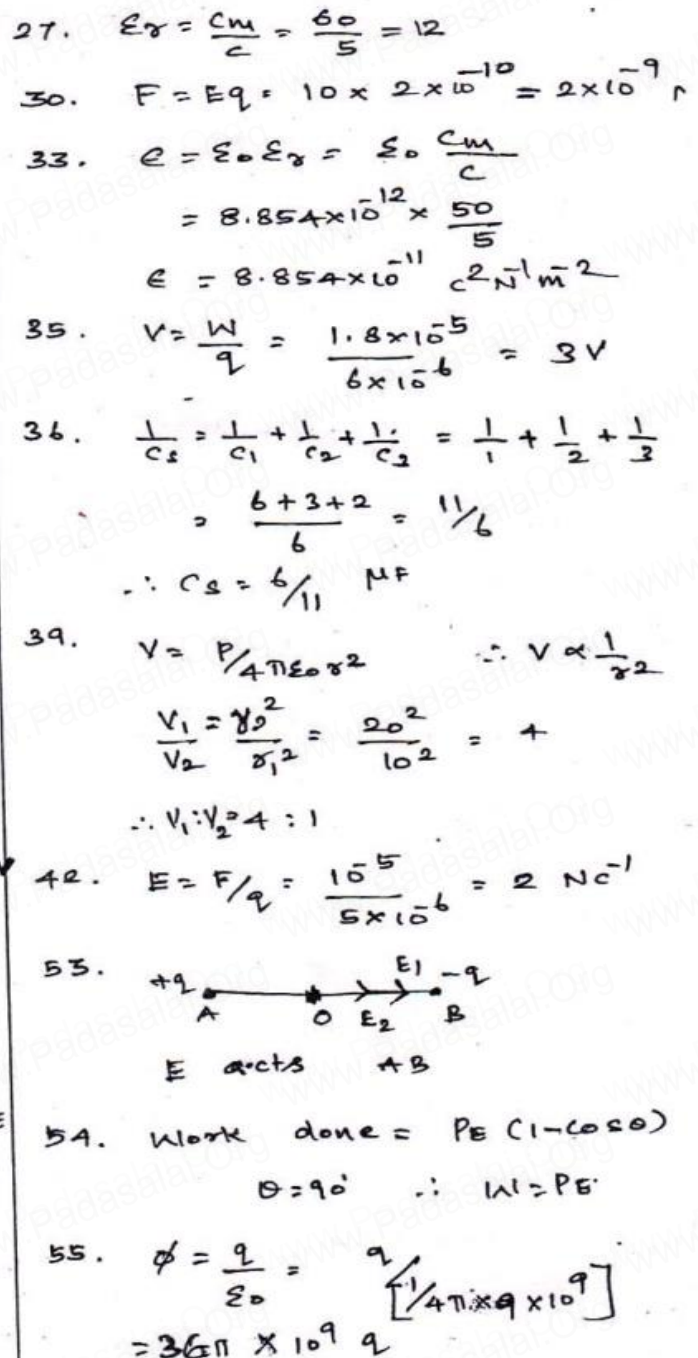 27. εr = cm/c = 60/5 = 12
30. F = Eq = 10 × 2×10^-10 = 2×10^-9 N
33. ϵ = ε0 εr = ε0 cm/c
= 8.854×10^-12 × 50/5
ϵ = 8.854×10^-11 c^2 N^-1 m^-2
35. V = W/q = 1.8×10^-5 / 6×10^-6 = 3V
36. 1/Cs = 1/C1 + 1/C2 + 1/C3 = 1/1 + 1/2 + 1/3
= 6+3+2 / 6 = 11/6
∴ Cs = 6/11 μF
39. V = P/4πε0r2 ∴ V ∝ 1/r2
V1/V2 = r2^2/r1^2 = 20^2/10^2 = 4
∴ V1:V2 = 4 : 1
42. E = F/q = 10^-5 / 5×10^-6 = 2 NC^-1
53. +q A O E2 E1 -q B
E acts AB
54. Work done = PE (1-cosθ)
θ=90° ∴ W=PE
55. φ = q/ε0 = q/[1/4π×9×10^9]
=36π × 10^9 q
www.Padasalai.Org